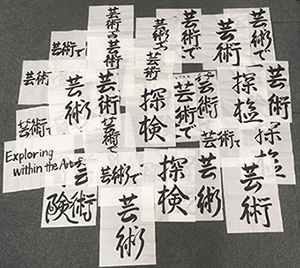 芸術
芸術
芸術で
芸術で
芸術で
芸術で
芸術
芸術
探検
芸術で
芸術
探検
芸術で
芸術で
芸術で
探検
Exploring
within the Arts
芸術
険
芸術で
探検
芸術
芸術
芸術